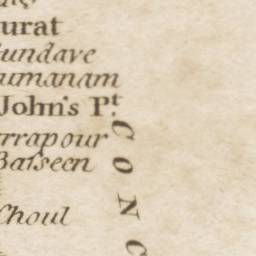 urat
undave
umanam
John's Pt.
rrapour
Baſseen
Choul
C
O
N
C